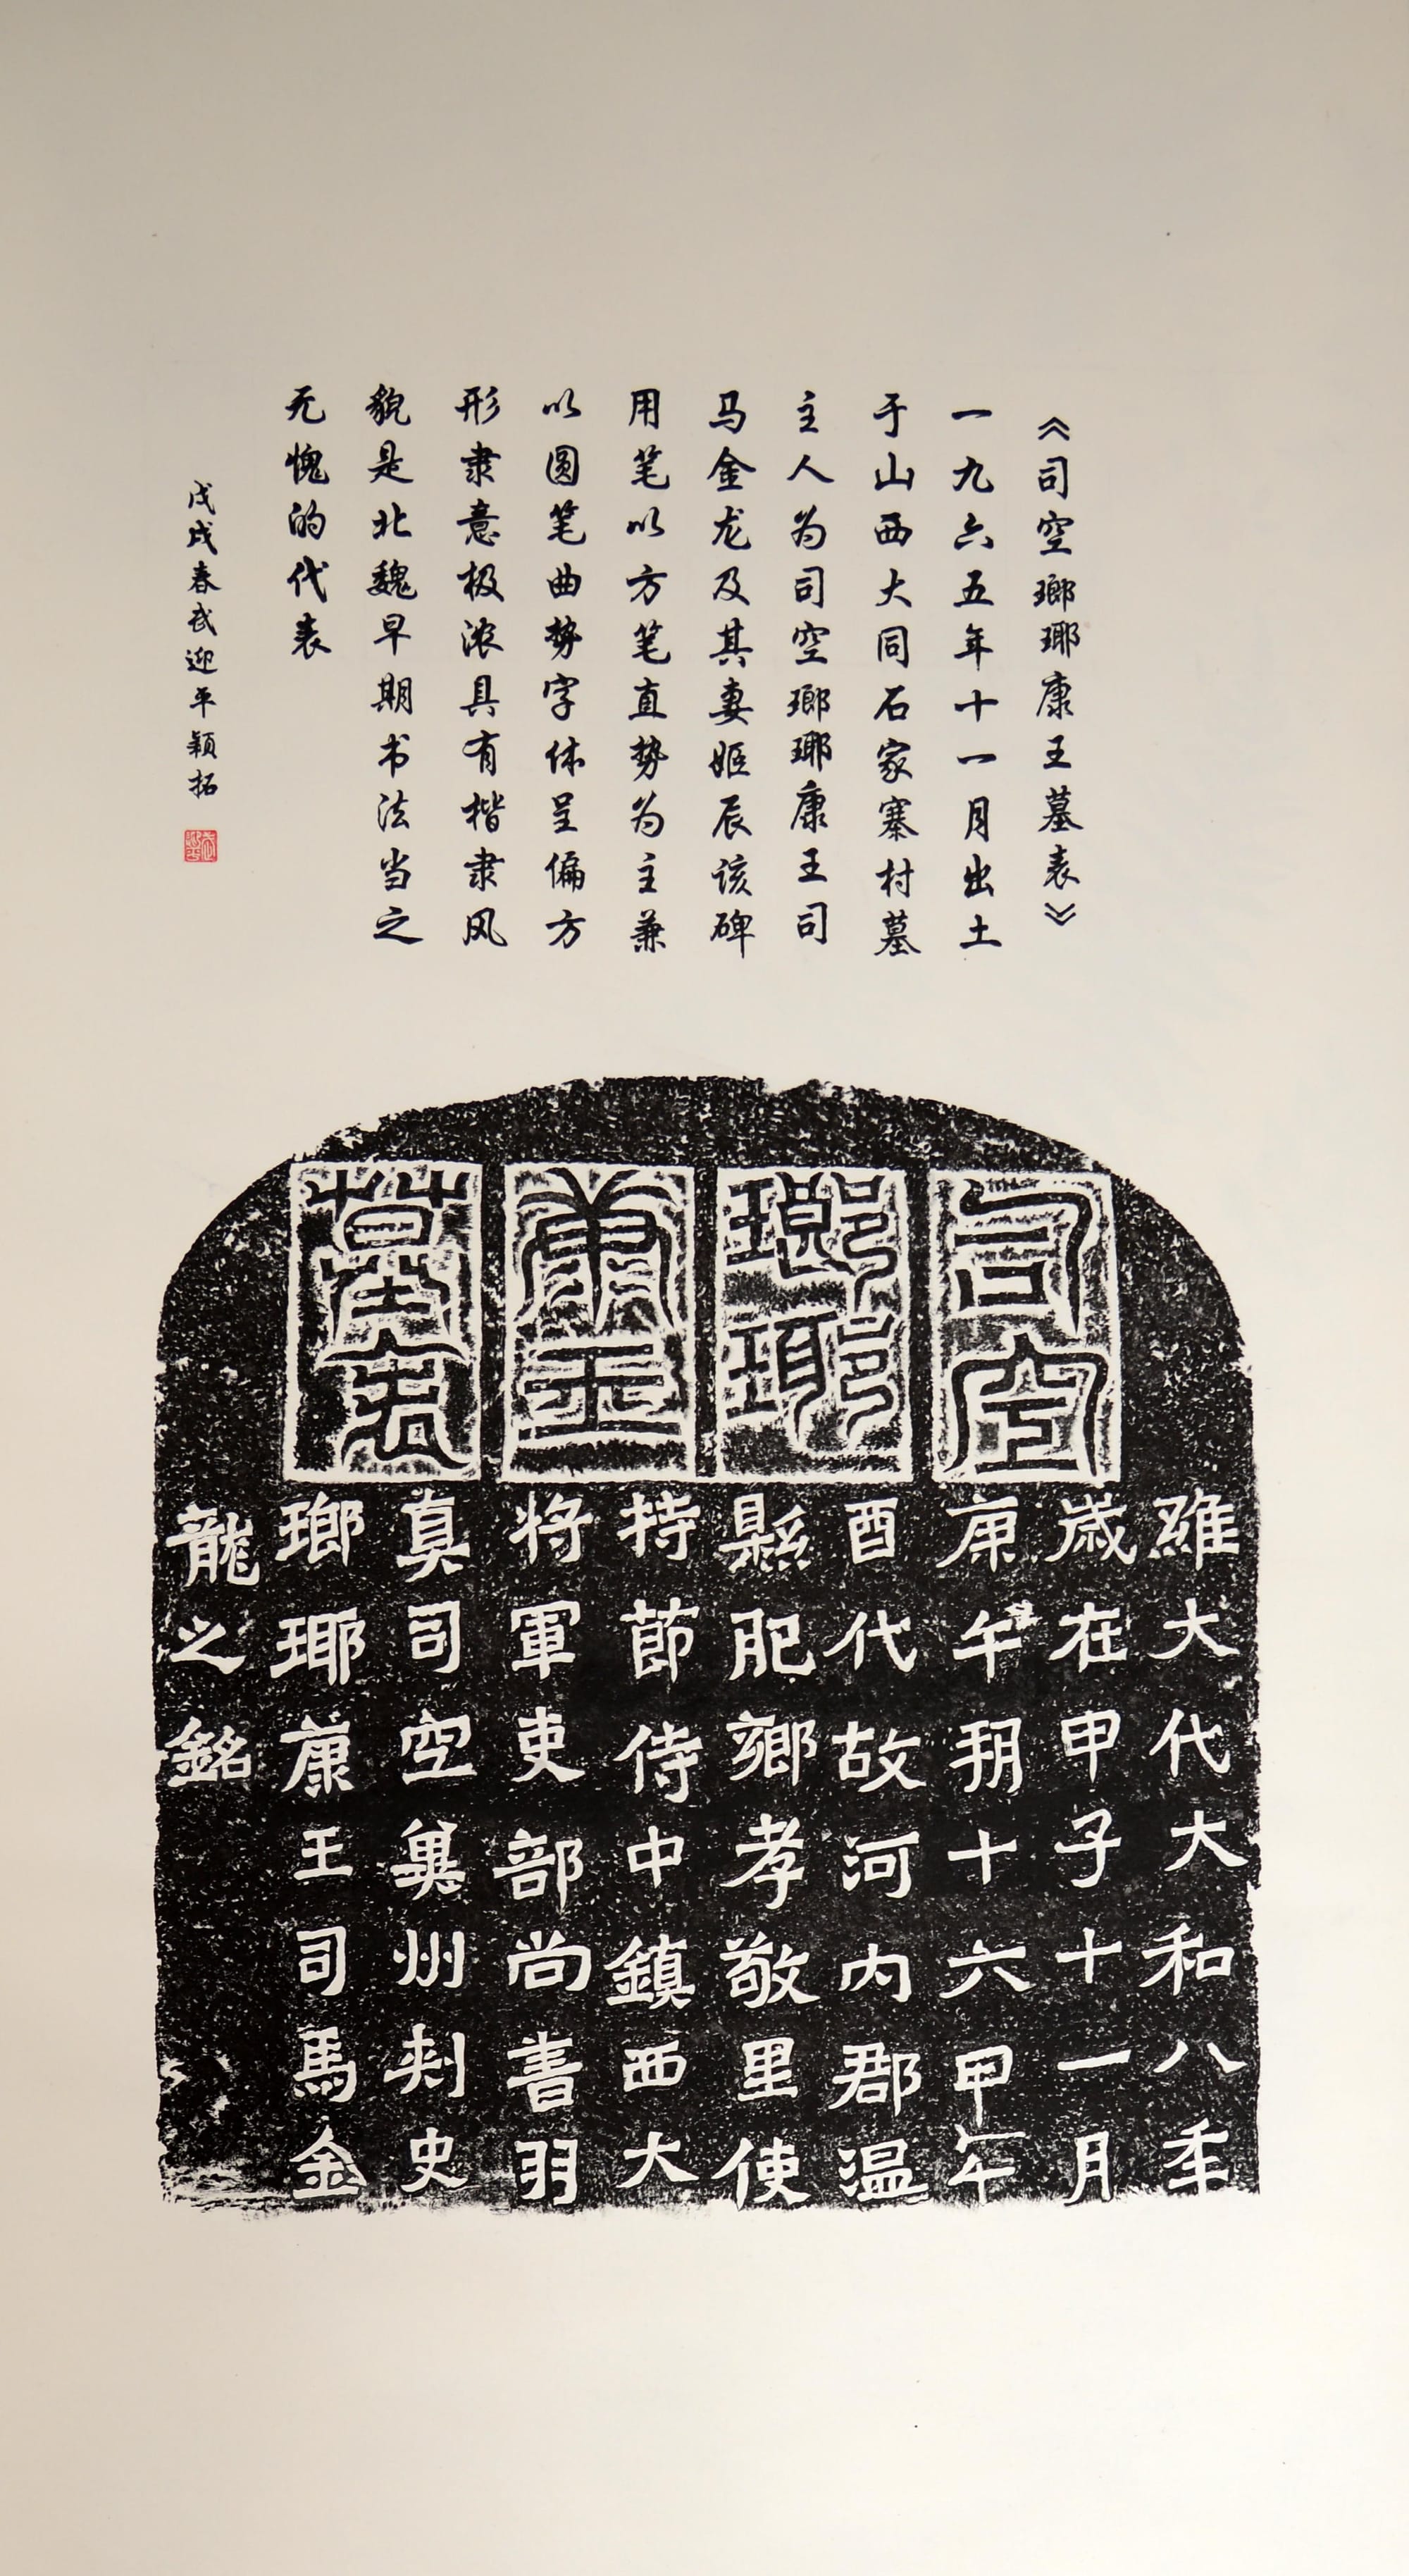 《司空瑯瑘康王墓表》
一九六五年十一月出土
于山西大同石家寨村墓
主人为司空瑯瑘康王司
马金龙及其妻姬辰该碑
用笔以方笔直势为主兼
以圆笔曲势字体呈偏方
形隶意极浓具有楷隶风
貌是北魏早期书法当之
无愧的代表
戊戌春武迎平颖拓
武迎平
司空
瑯瑘
康王
墓表
維大代大和八年
歲在甲子十一月
庚午朔十六甲午
酉代故河内郡温
縣肥鄉孝敬里使
持節侍中鎮西大
将軍吏部尚書羽
真司空冀州刺史
瑯瑘康王司馬金
龍之銘